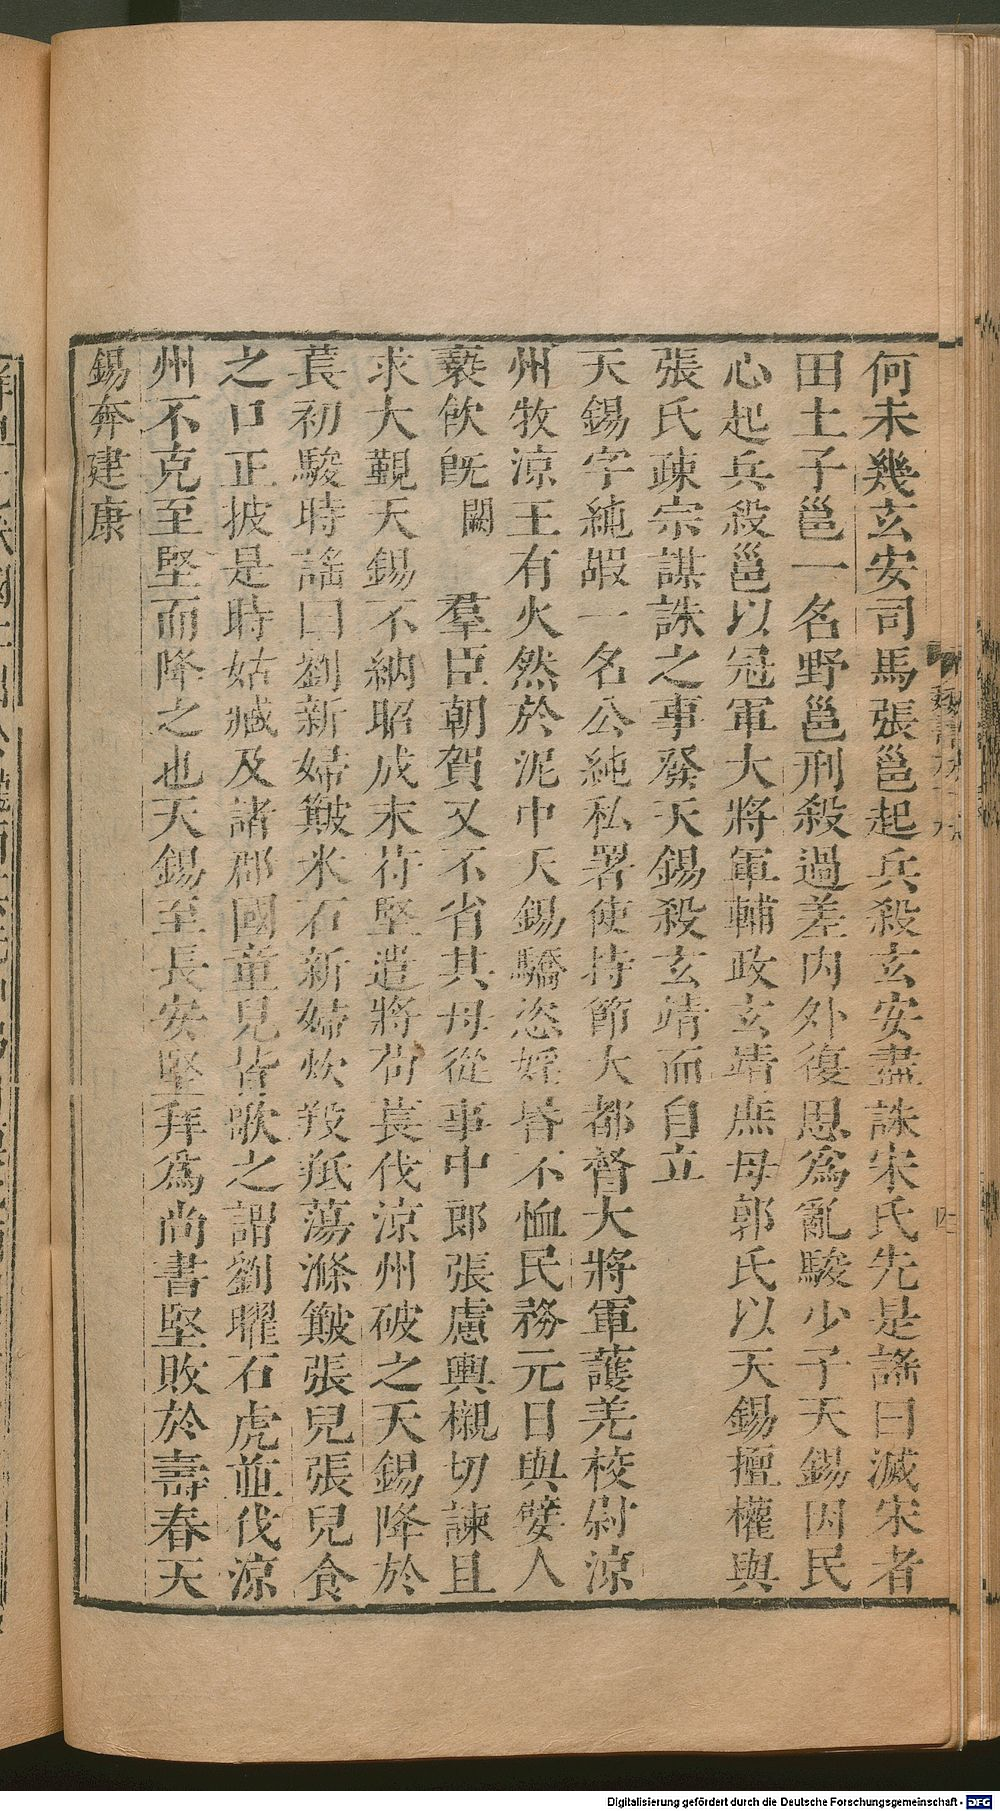 何未幾玄安司馬張邕起兵殺玄安盡誅宋氏先是謠曰滅宋者
田土子邕一名野邕刑殺過差內外復思爲亂駿少子天錫因民
心起兵殺邕以冠軍大將軍輔政玄靖庶母郭氏以天錫擅權與
張氏疎宗謀誅之事發天錫殺玄靖而自立
天錫字純嘏一名公純私署使持節大都督大將軍護羌校尉涼
州牧涼王有火然於泥中天錫驕恣婬昏不恤民務元日與嬖人
褻飮旣闕羣臣朝賀又不省其母從事中郎張慮輿櫬切諫且
求大覲天錫不納昭成末苻堅遣將苟萇伐涼州破之天錫降於
萇初駿時謠曰劉新婦簸米石新婦炊羖羝蕩滌簸張兒張兒食
之口正披是時姑臧及諸郡國童兒皆歌之謂劉曜石虎並伐涼
州不克至堅而降之也天錫至長安堅拜爲尚書堅敗於壽春天
錫奔建康
Digitalisierung gefördert durch die Deutsche Forschungsgemeinschaft - DFG